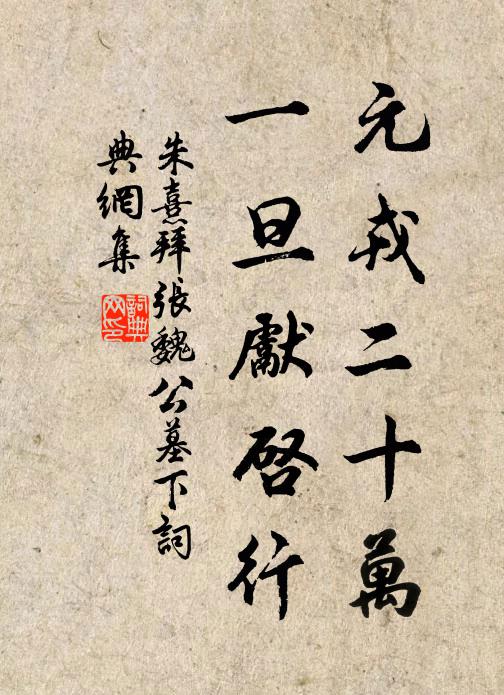 元戎二十萬
一旦獻啓行
朱熹拜張魏公墓下詞
典網集
詞典网印